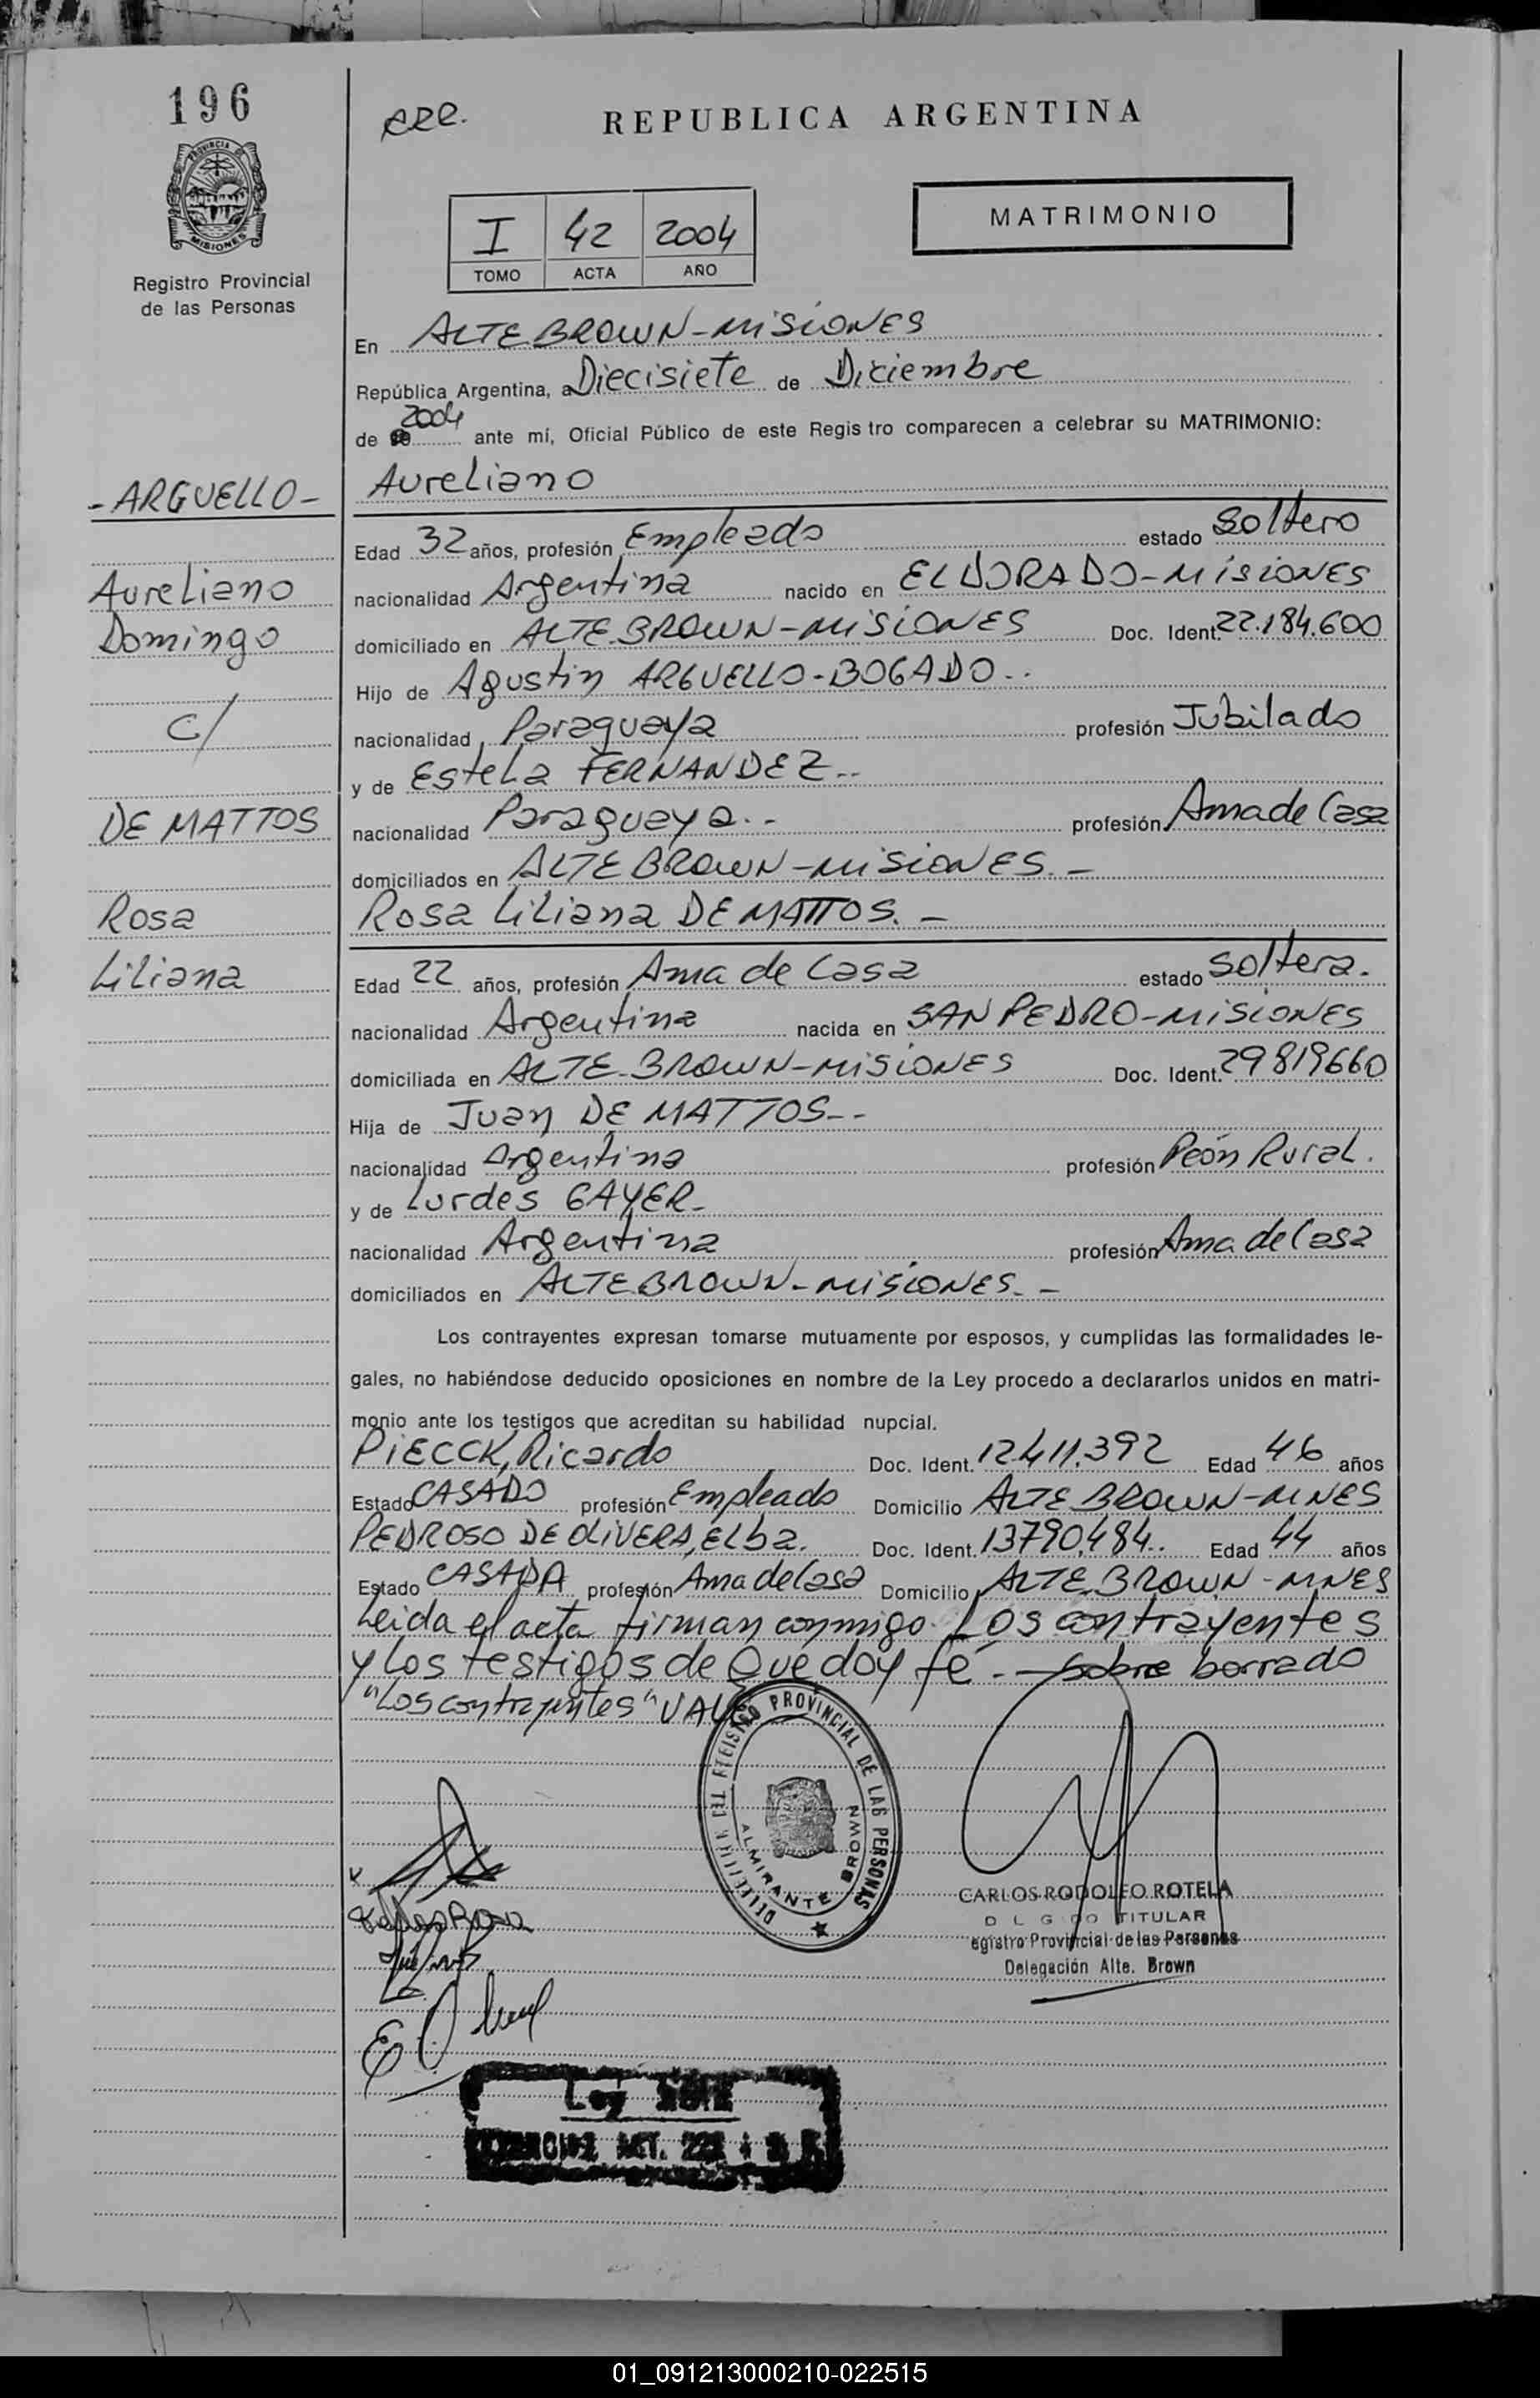 196
RRR.
REPUBLICA ARGENTINA
PROVINCIA DE
MISIONES
Registro Provincial
de las Personas
I 42 2004
TOMO ACTA AÑO
MATRIMONIO
En ALTE BROWN-MISIONES
República Argentina, a Diecisiete de Diciembre
de 2004 ante mí, Oficial Público de este Regis tro comparecen a celebrar su MATRIMONIO:
-ARGUELLO- Aureliano
Edad 32 años, profesión Empleado estado Soltero
Aureliano nacionalidad Argentina nacido en ELDORADO-MISIONES
Domingo domiciliado en ALTE.BROWN-MISIONES Doc. Ident. 22.184.600
Hijo de Agustin ARGUELLO-BOGADO..
C/ nacionalidad Paraguaya profesión Jubilado
y de Estela FERNANDEZ..
DE MATTOS nacionalidad Paraguaya.. profesión Ama de Casa
domiciliados en ALTE BROWN-MISIONES.-
Rosa Rosa Liliana DE MATTOS.-
Liliana Edad 22 años, profesión Ama de Casa estado Soltera.
nacionalidad Argentina nacida en SAN PEDRO-MISIONES
domiciliada en ALTE.BROWN-MISIONES Doc. Ident. 29819660
Hija de Juan DE MATTOS--
nacionalidad Argentina profesión Peón Rural.
y de Lurdes GAYER-
nacionalidad Argentina profesión Ama de Casa
domiciliados en ALTE.BROWN-MISIONES.-
Los contrayentes expresan tomarse mutuamente por esposos, y cumplidas las formalidades le-
gales, no habiéndose deducido oposiciones en nombre de la Ley procedo a declararlos unidos en matri-
monio ante los testigos que acreditan su habilidad nupcial.
PIECCK, Ricardo Doc. Ident. 12.411.392 Edad 46 años
Estado CASADO profesión Empleado Domicilio ALTE BROWN-MNES
PEDROSO DE OLIVERA, Elba. Doc. Ident. 13790.484.. Edad 44 años
Estado CASADA profesión Ama de Casa Domicilio ALTE.BROWN-MNES
Leida el acta firman conmigo Los contrayentes
y los testigos de Que doy fé.- Sobre borrado
"Los contrayentes" VALE
REGISTRO PROVINCIAL DE LAS PERSONAS
ALMIRANTE BROWN
CARLOS RODOLFO ROTELA
TITULAR
egistro Provincial de las Personas
Delegación Alte. Brown
Ley
01_091213000210-022515